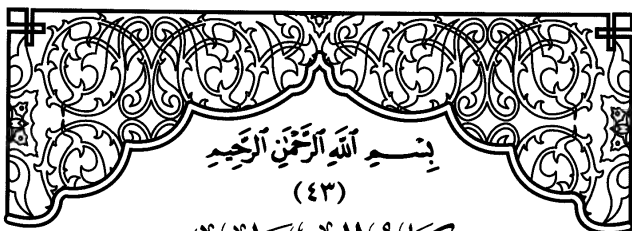 بِسْمِ ٱللَّهِ ٱلرَّحْمَٰنِ ٱلرَّحِيمِ
(٤٣)